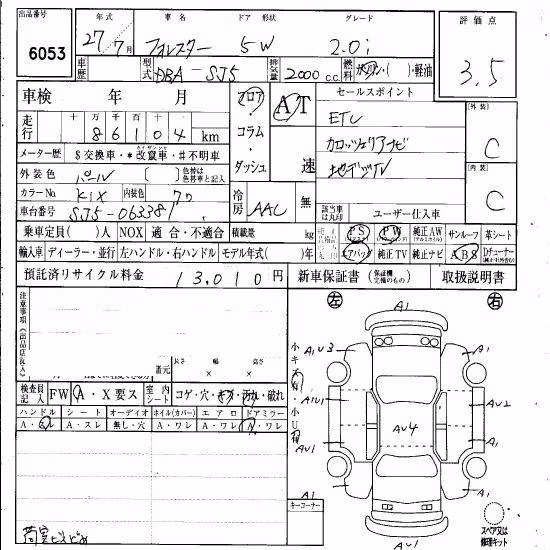 出品番号
6053
年式 車名 ドア 形状 グレード
27年 7月 フォレスター 5W 2.0i
評価点
3.5
車歴
型式 DBA-SJ5
排気量 2000 c.c.
燃料 ガソリン・( )・軽油
車検 年 月
フロア・コラム・ダッシュ
AT 速
セールスポイント
ETC
カロッツェリアナビ
地デジTV
外装 C
内装 C
走行 十万 万 千 百 十 一
86104 km
メーター歴 $交換車・*改竄車・#不明車
外装色 パール
色替車は元色と色替車と記入
カラーNo KIX 内装色 クロ
車台番号 SJ5-063381
冷房 AAC 無
該当車は丸印
ユーザー仕入車
乗車定員( )人 NOX 適合・不適合 積載量 kg
PS PW 純正AW サンルーフ 革シート
輸入車 ディーラー・並行 左ハンドル・右ハンドル モデル年式( )年
エアバッグ 純正TV 純正ナビ ABS Dチューナー
預託済リサイクル料金 13,010円
新車保証書 取扱説明書
注意事項(出品店記入)
番元 長さ × 幅 × 高さ
検査員記入 FW A・X要ス 室内シート コゲ・穴・キズ・汚れ・破れ
ハンドル シート オーディオ ホイル(カバー) エアロ ドアミラー
A・スレ A・スレ 無し・穴 A・ワレ A・ワレ A・ワレ
荷室
左 右
A1
A1
A1
AU2
A1
AU4
AU1
A1
A1
AU1
キーコーナー
スペア又は修理キット